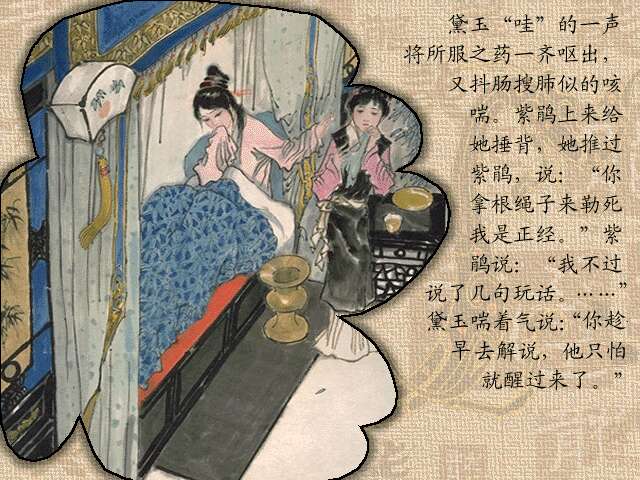 黛玉“哇”的一声
将所服之药一齐呕出，
又抖肠搜肺似的咳
喘。紫鹃上来给
她捶背，她推过
紫鹃，说：“你
拿根绳子来勒死
我是正经。”紫
鹃说：“我不过
说了几句玩话。……”
黛玉喘着气说：“你趁
早去解说，他只怕
就醒过来了。”